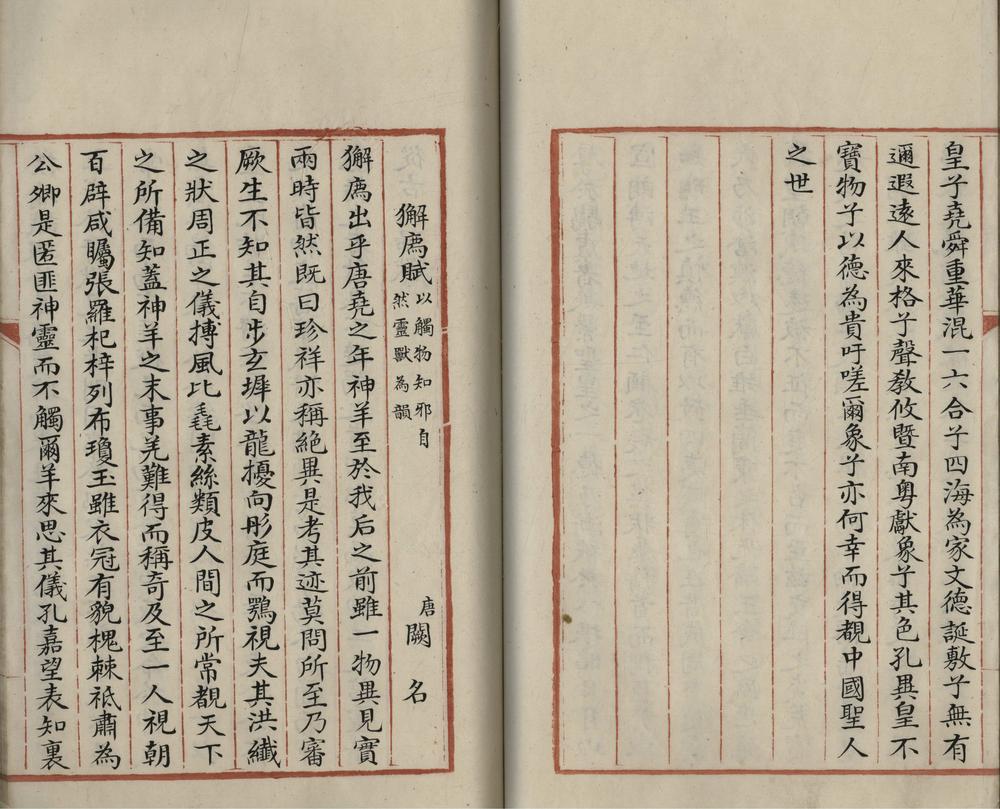 皇兮堯舜重華混一六合兮四海為家文德誕敷兮無有
邇遐遠人來格兮聲敎攸暨南粤獻象兮其色孔異皇不
寶物兮以德為貴吁嗟爾象兮亦何幸而得覩中國聖人
之世
獬廌賦以觸物知邪自然靈獸為韻
唐闕名
獬廌出乎唐堯之年神羊至於我后之前雖一物異見實
兩時皆然既曰珍祥亦稱絕異是考其迹莫問所至乃審
厥生不知其自步玄墀以龍擾向彤庭而鶚視夫其洪纖
之狀周正之儀搏風比毳素絲類皮人間之所常覩天下
之所備知蓋神羊之末事羌難得而稱奇及至一人視朝
百辟咸矚張羅杞梓列布瓊玉雖衣冠有貌槐棘祇肅為
公卿是匿匪神靈而不觸爾羊來思其儀孔嘉望表知裏